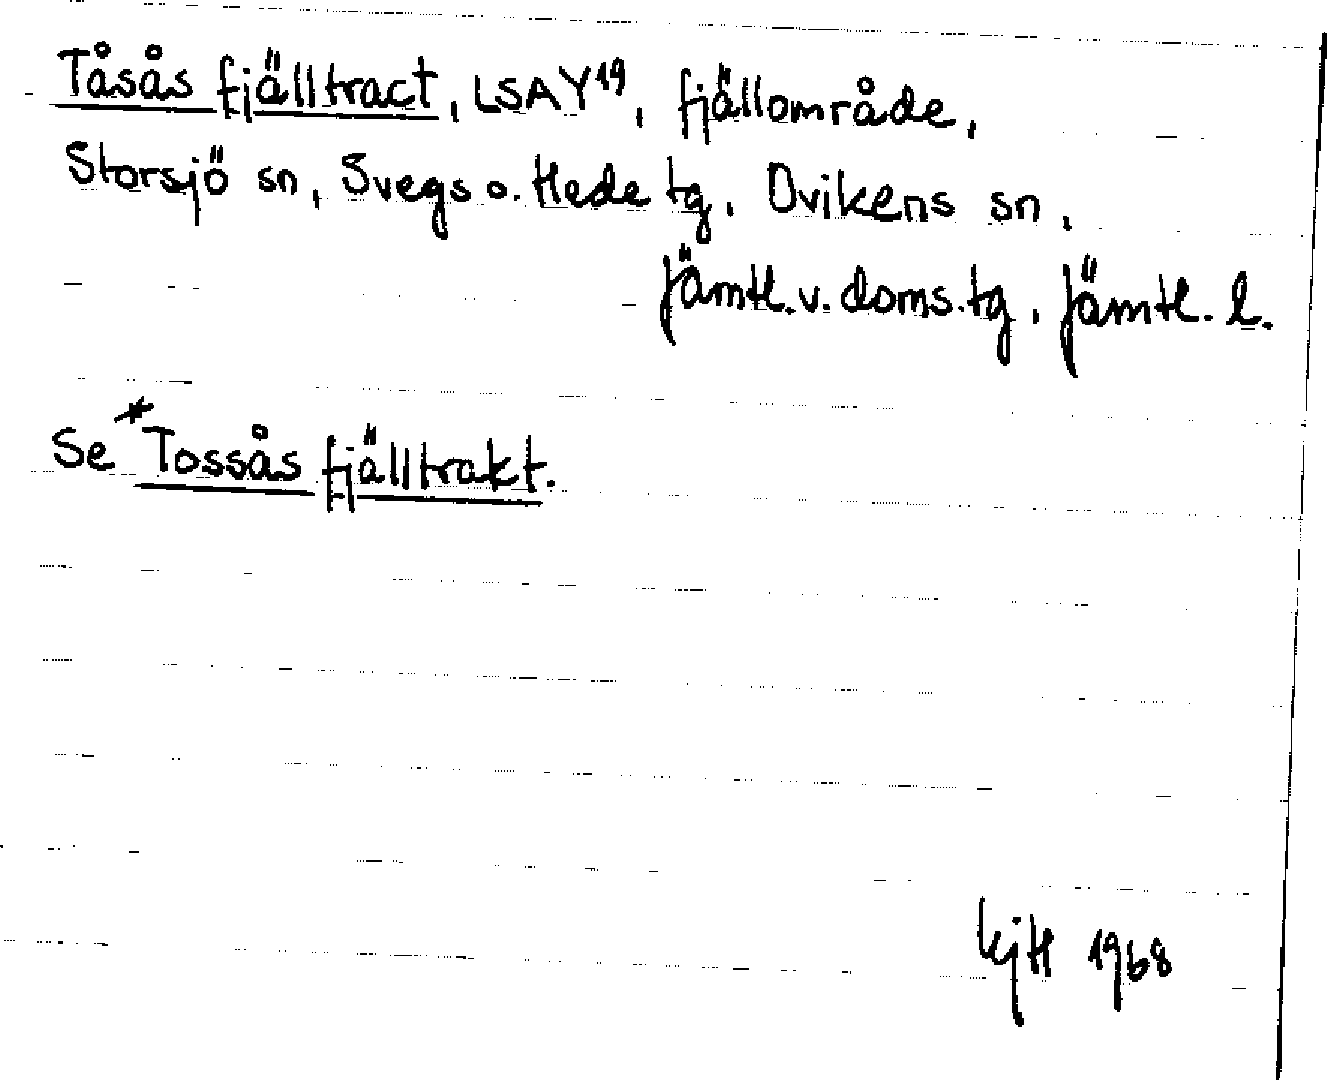 Tåsås fjälltract, LSA Y19, fjällområde,
Storsjö sn, Svegs o. Hede tg, Ovikens sn,
Jämtl. v. doms. tg, Jämtl. l.
Se *Tossås fjälltrakt.
1968